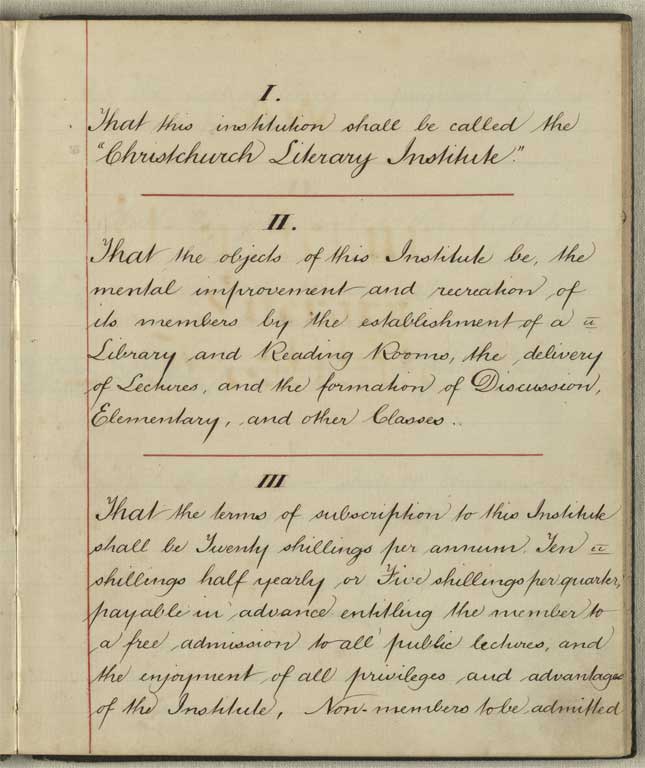 I.
That this institution shall be called the
"Christchurch Literary Institute."
II.
That the objects of this Institute be, the
mental improvement and recreation of
its members by the establishment of a
Library and Reading Rooms, the delivery
of Lectures, and the formation of Discussion,
Elementary, and other Classes.
III
That the terms of subscription to this Institute
shall be Twenty shillings per annum. Ten
shillings half yearly or Five shillings per quarter,
payable in advance entitling the member to
a free admission to all public lectures, and
the enjoyment of all privileges and advantages
of the Institute, Non-members to be admitted